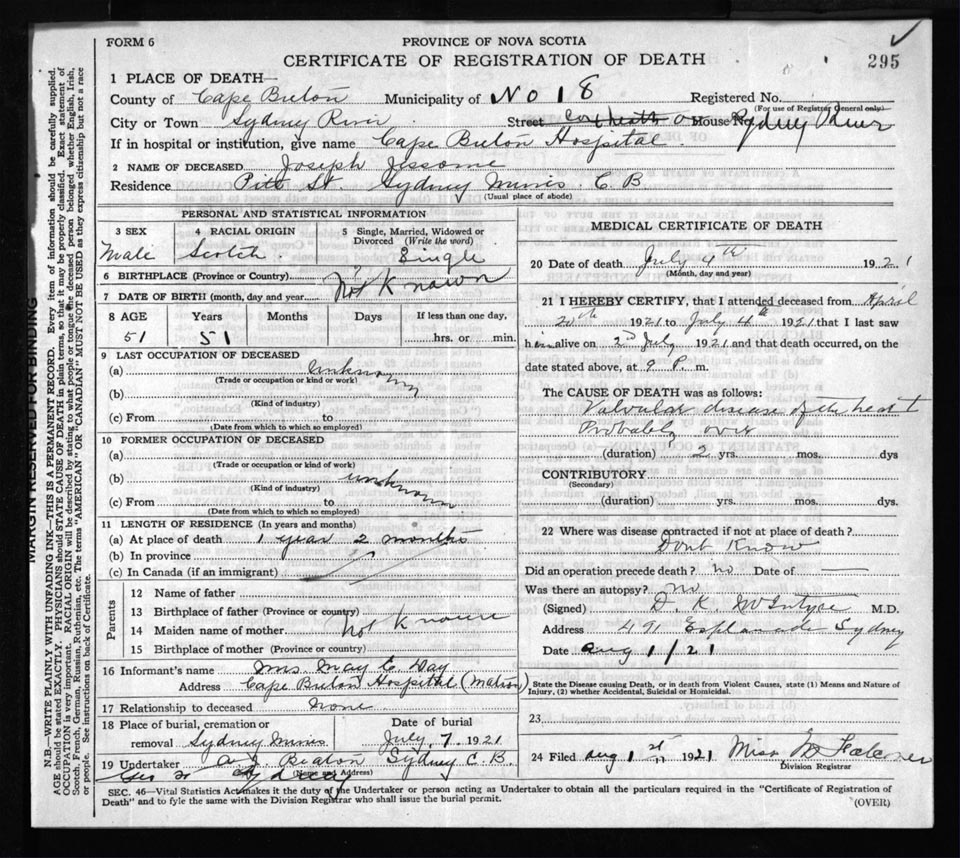 FORM 6
PROVINCE OF NOVA SCOTIA
CERTIFICATE OF REGISTRATION OF DEATH
295
1 PLACE OF DEATH—
County of Cape Breton Municipality of No 18 Registered No.
(For use of Registrar General only)
City or Town Sydney River Street Coxheath or House No. Sydney River
If in hospital or institution, give name Cape Breton Hospital.
2 NAME OF DECEASED Joseph Jessome
Residence Pitt St Sydney Mines C B
(Usual place of abode)
PERSONAL AND STATISTICAL INFORMATION
3 SEX 4 RACIAL ORIGIN 5 Single, Married, Widowed or Divorced (Write the word)
Male Scotch Single
6 BIRTHPLACE (Province or Country) ?
7 DATE OF BIRTH (month, day and year) Not Known
8 AGE Years Months Days If less than one day,
51 51 hrs. or min.
9 LAST OCCUPATION OF DECEASED
(a) Unknown
(Trade or occupation or kind or work)
(b)
(Kind of industry)
(c) From to
(Date from which to which so employed)
10 FORMER OCCUPATION OF DECEASED
(a)
(Trade or occupation or kind of work)
(b) unknown
(Kind of industry)
(c) From to
(Date from which to which so employed)
11 LENGTH OF RESIDENCE (In years and months)
(a) At place of death 1 year 2 months
(b) In province
(c) In Canada (if an immigrant)
Parents
12 Name of father
13 Birthplace of father (Province or country)
14 Maiden name of mother Not Known
15 Birthplace of mother (Province or country)
16 Informant's name Mrs. May C Day
Address Cape Breton Hospital (Matron)
17 Relationship to deceased None
18 Place of burial, cremation or Date of burial
removal Sydney Mines July 7, 1921
19 Undertaker A J. Beaton Sydney C. B.
(Name and Address)
Sydney
MEDICAL CERTIFICATE OF DEATH
20 Date of death July 4th 1921
(Month, day and year)
21 I HEREBY CERTIFY, that I attended deceased from April
20th 1921 to July 4th 1921 that I last saw
him alive on 2nd July 1921 and that death occurred, on the
date stated above, at 9 P. m.
The CAUSE OF DEATH was as follows:
Valvular disease of the heart
Probably over
(duration) 2 yrs. mos. dys
CONTRIBUTORY
(Secondary)
(duration) yrs. mos. dys.
22 Where was disease contracted if not at place of death?
Dont Know
Did an operation precede death? no Date of —
Was there an autopsy? no
(Signed) D. K. McIntyre M.D.
Address 491 Esplanade Sydney
Date Aug 1/21
State the Disease causing Death, or in death from Violent Causes, state (1) Means and Nature of
Injury, (2) whether Accidental, Suicidal or Homicidal.
23
24 Filed Aug 1st 1921 Miss M Falconer
Division Registrar
SEC. 46—Vital Statistics Act makes it the duty of the Undertaker or person acting as Undertaker to obtain all the particulars required in the "Certificate of Registration of
Death" and to fyle the same with the Division Registrar who shall issue the burial permit.
(OVER)
MARGIN RESERVED FOR BINDING
N.B.—WRITE PLAINLY WITH UNFADING INK—THIS IS A PERMANENT RECORD. Every item of information should be carefully supplied.
AGE should be stated EXACTLY. PHYSICIANS should STATE CAUSE OF DEATH in plain terms, so that it may be properly classified. Exact statement of
OCCUPATION is very important. RACIAL ORIGIN will be described by stating to what people or tongue the deceased person belonged, whether English, Irish,
Scotch, French, German, Russian, Ruthenian, etc. The terms "AMERICAN" OR "CANADIAN" MUST NOT BE USED as they express citizenship but not a race
or people. See instructions on back of Certificate.